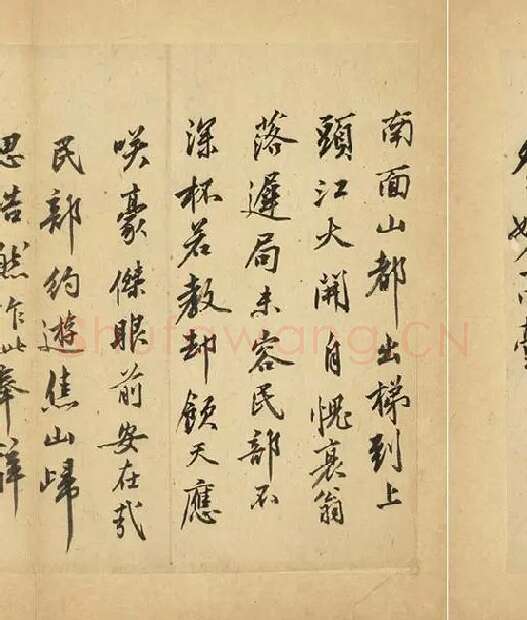 南面山都出梯到上
頭江大開自愧衰翁
落遲局未容民部不
深杯若教却顧天應
咲豪傑眼前安在哉
民部約遊焦山歸
思浩然作此奉
Shufawang.CN